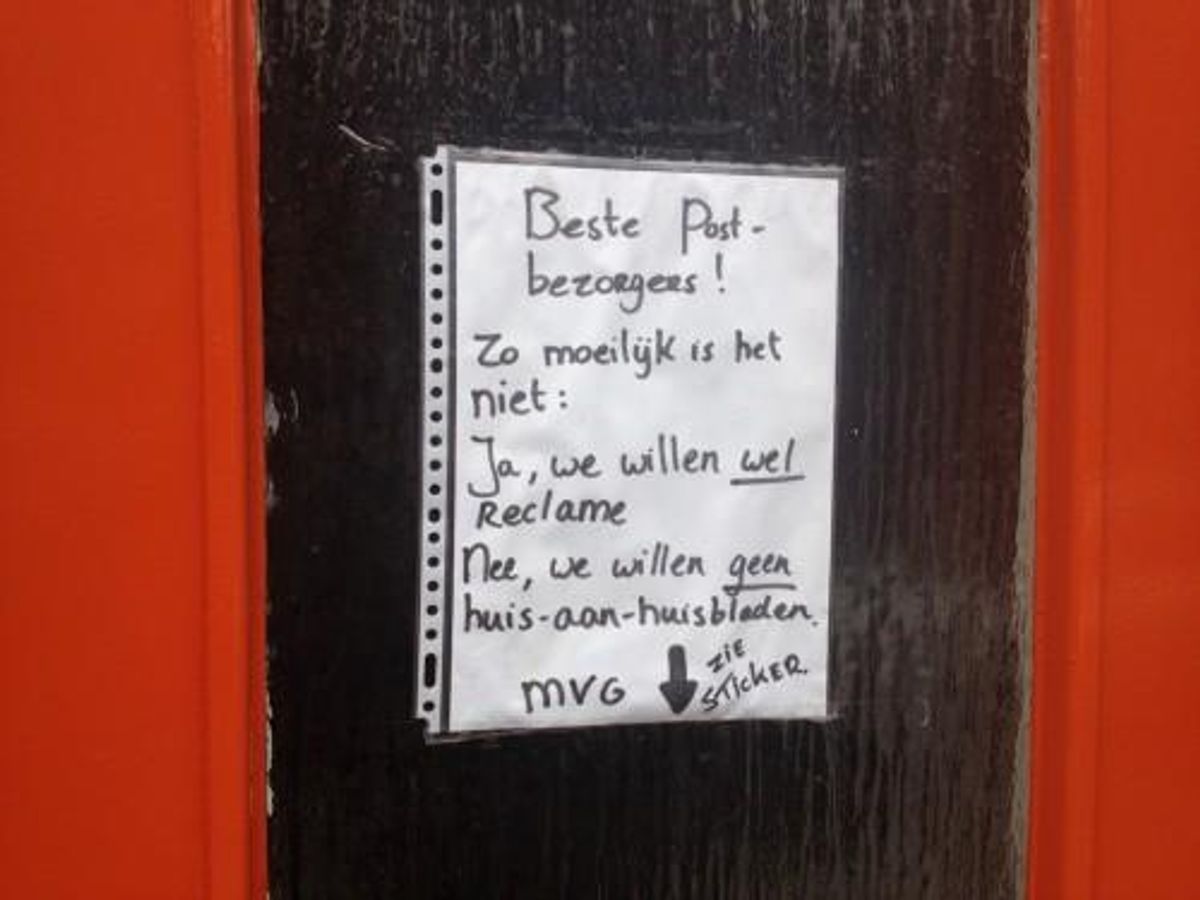 Beste Post-
bezorgers!
Zo moeilijk is het
niet:
Ja, we willen wel
Reclame
Nee, we willen geen
huis-aan-huisbladen.
MVG ZIE
STICKER.